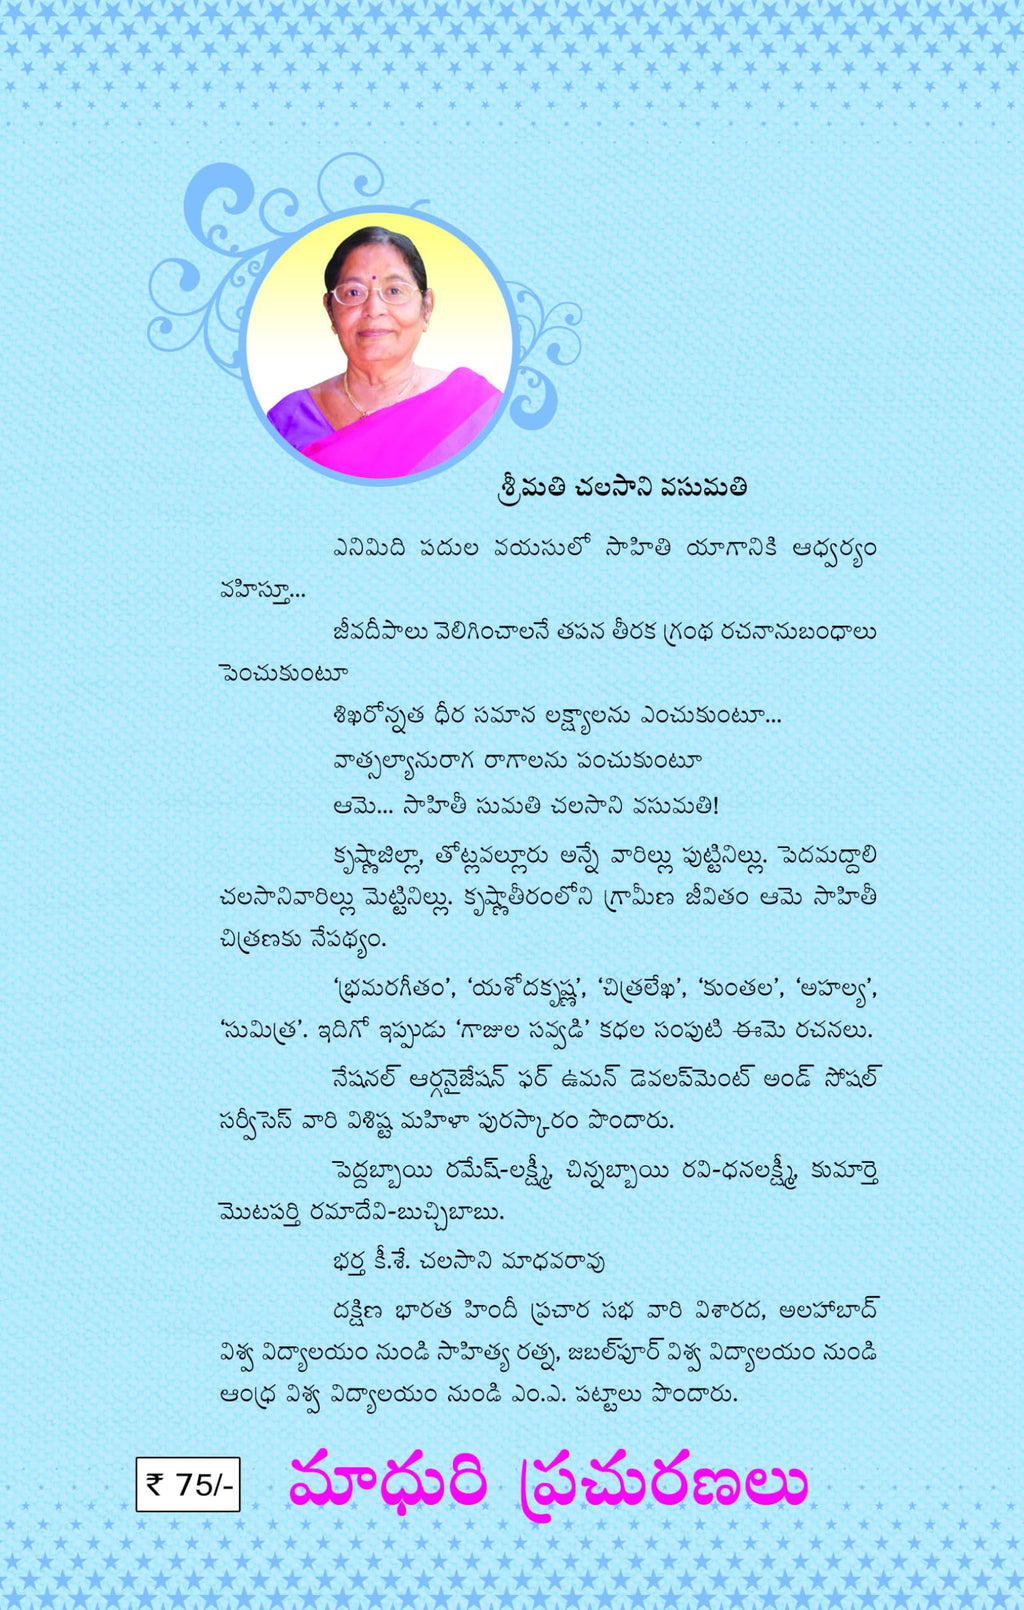 శ్రీమతి చలసాని వసుమతి
ఎనిమిది పదుల వయసులో సాహితి యాగానికి ఆధ్వర్యం
వహిస్తూ...
జీవదీపాలు వెలిగించాలనే తపన తీరక గ్రంథ రచనానుబంధాలు
పెంచుకుంటూ
శిఖరోన్నత ధీర సమాన లక్ష్యాలను ఎంచుకుంటూ...
వాత్సల్యానురాగ రాగాలను పంచుకుంటూ
ఆమె... సాహితీ సుమతి చలసాని వసుమతి!
కృష్ణాజిల్లా, తోట్లవల్లూరు అన్నే వారిల్లు పుట్టినిల్లు. పెదమద్దాలి
చలసానివారిల్లు మెట్టినిల్లు. కృష్ణాతీరంలోని గ్రామీణ జీవితం ఆమె సాహితీ
చిత్రణకు నేపథ్యం.
‘భ్రమరగీతం’, ‘యశోదకృష్ణ’, ‘చిత్రలేఖ’, ‘కుంతల’, ‘అహల్య’,
‘సుమిత్ర’. ఇదిగో ఇప్పుడు ‘గాజుల సవ్వడి’ కథల సంపుటి ఈమె రచనలు.
నేషనల్ ఆర్గనైజేషన్ ఫర్ ఉమన్ డెవలప్‌మెంట్ అండ్ సోషల్
సర్వీసెస్ వారి విశిష్ట మహిళా పురస్కారం పొందారు.
పెద్దబ్బాయి రమేష్-లక్ష్మీ, చిన్నబ్బాయి రవి-ధనలక్ష్మీ, కుమార్తె
మొటపర్తి రమాదేవి-బుచ్చిబాబు.
భర్త కీ.శే. చలసాని మాధవరావు
దక్షిణ భారత హిందీ ప్రచార సభ వారి విశారద, అలహాబాద్
విశ్వ విద్యాలయం నుండి సాహిత్య రత్న, జబల్‌పూర్ విశ్వ విద్యాలయం నుండి
ఆంధ్ర విశ్వ విద్యాలయం నుండి ఎం.ఎ. పట్టాలు పొందారు.
₹ 75/- మాధురి ప్రచురణలు